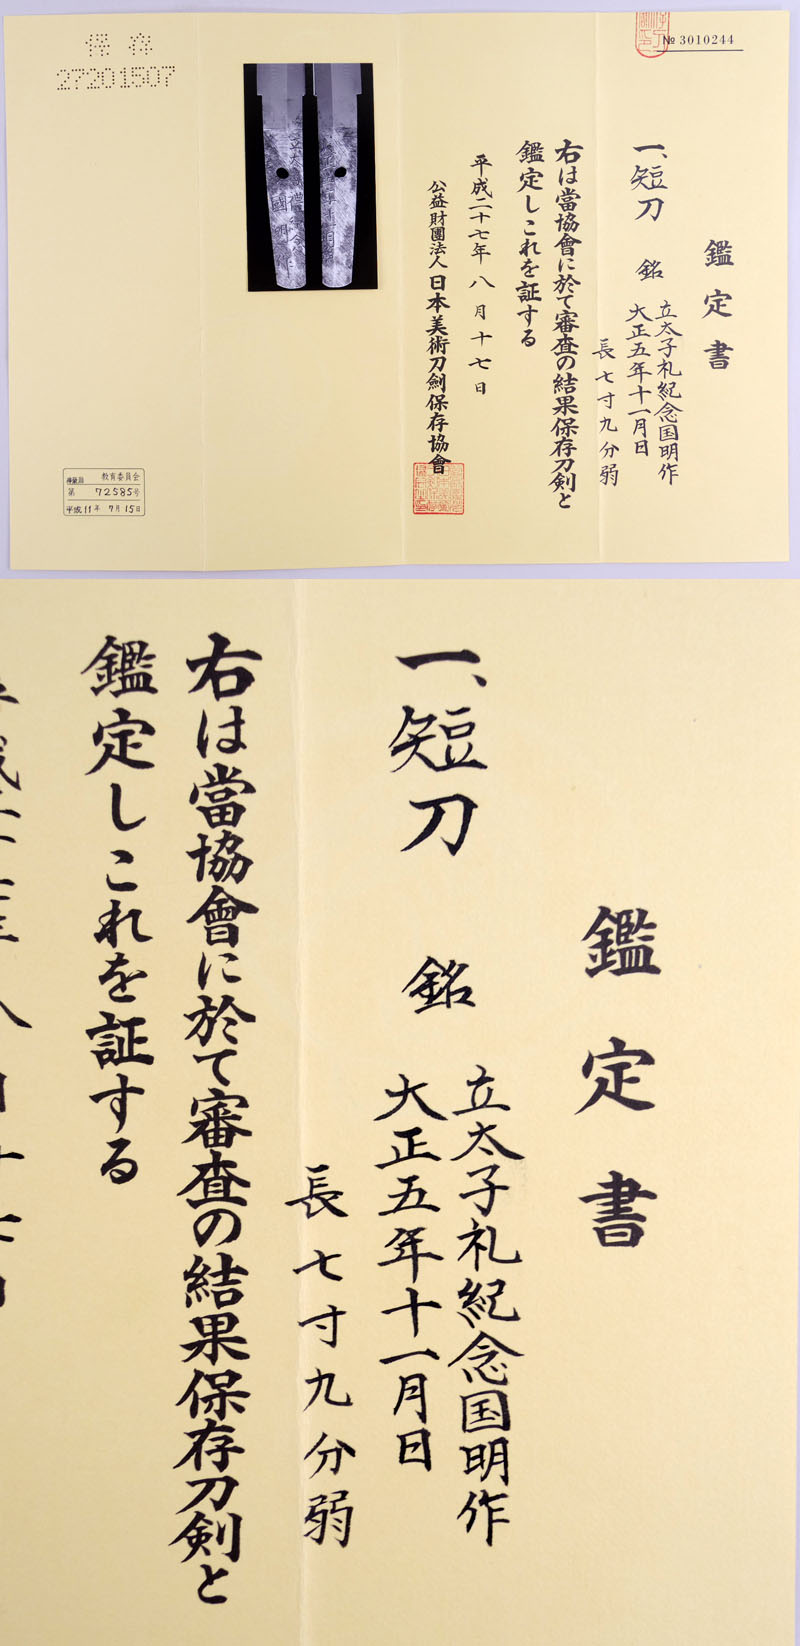 № 3010244
鑑定書
一、短刀 銘 立太子礼紀念国明作
大正五年十一月日
長七寸九分弱
右は當協會に於て審査の結果保存刀剣と
鑑定しこれを証する
平成二十七年八月十七日
公益財團法人日本美術刀劍保存協會
保存
27201507
教育委員会
第 72585号
平成11年 7月15日
鑑定書
一、短刀 銘 立太子礼紀念国明作
大正五年十一月日
長七寸九分弱
右は當協會に於て審査の結果保存刀剣と
鑑定しこれを証する